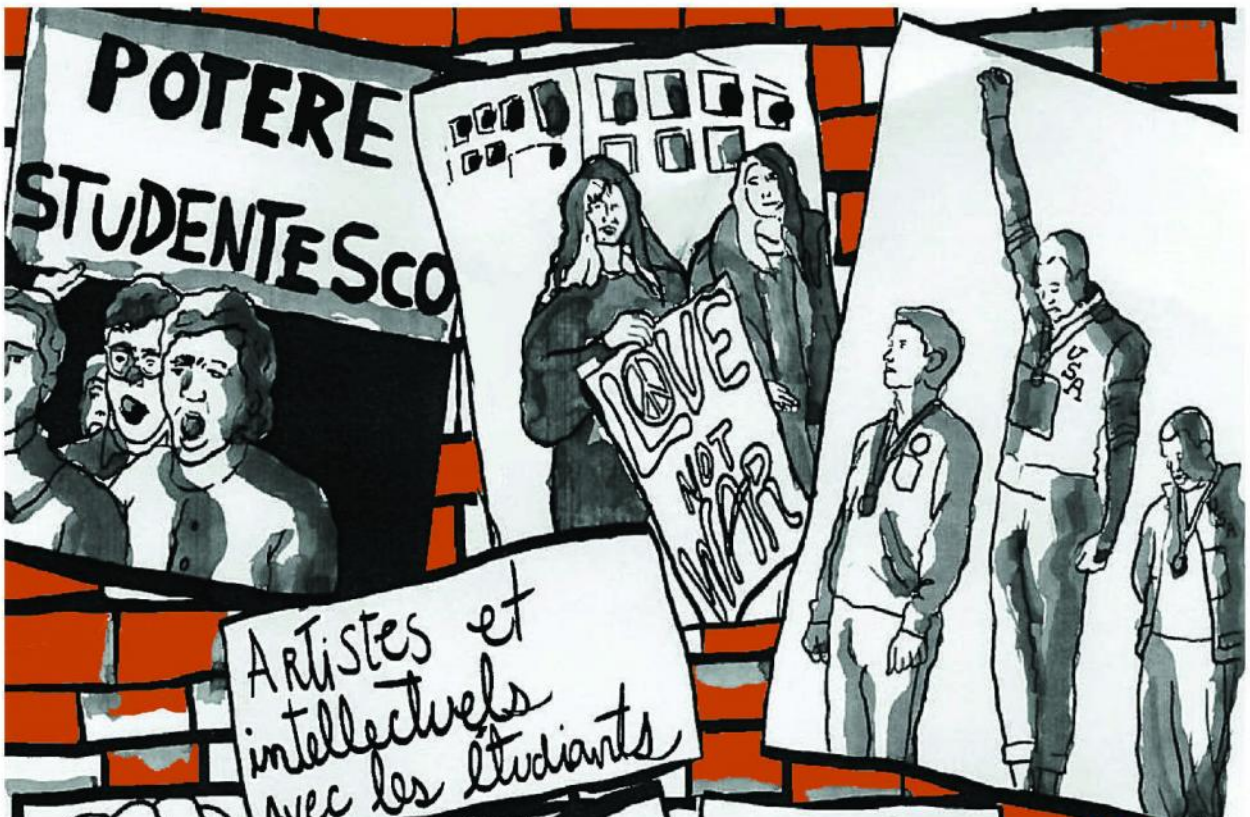 POTERE
STUDENTESCO
LOVE
NOT
WAR
USA
Artistes et
intellectuels
avec les étudiants